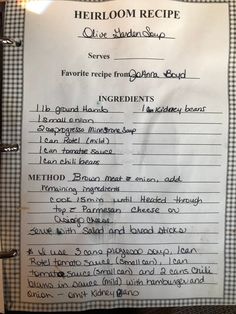 HEIRLOOM RECIPE
Olive Garden Soup
Serves
Favorite recipe from JoAnna Boyd
INGREDIENTS
1 lb ground Hamb 1 can Kidney beans
1 small onion
2 cans progresso Minestrone Soup
1 can Rotel (mild)
1 can tomatoe sauce
1 can chili beans
METHOD Brown meat & onion, add
remaining ingredients
Cook 15 min until Heated through
top c Parmesan cheese or
cheese
Serve with Salad and bread sticks
* I use 3 cans progresso soup, 1 can
Rotel tomato sauce (small can), 1 can
tomatoe sauce (small can) and 2 cans Chili
beans in sauce (mild) with hamburger and
onion - omit Kidney